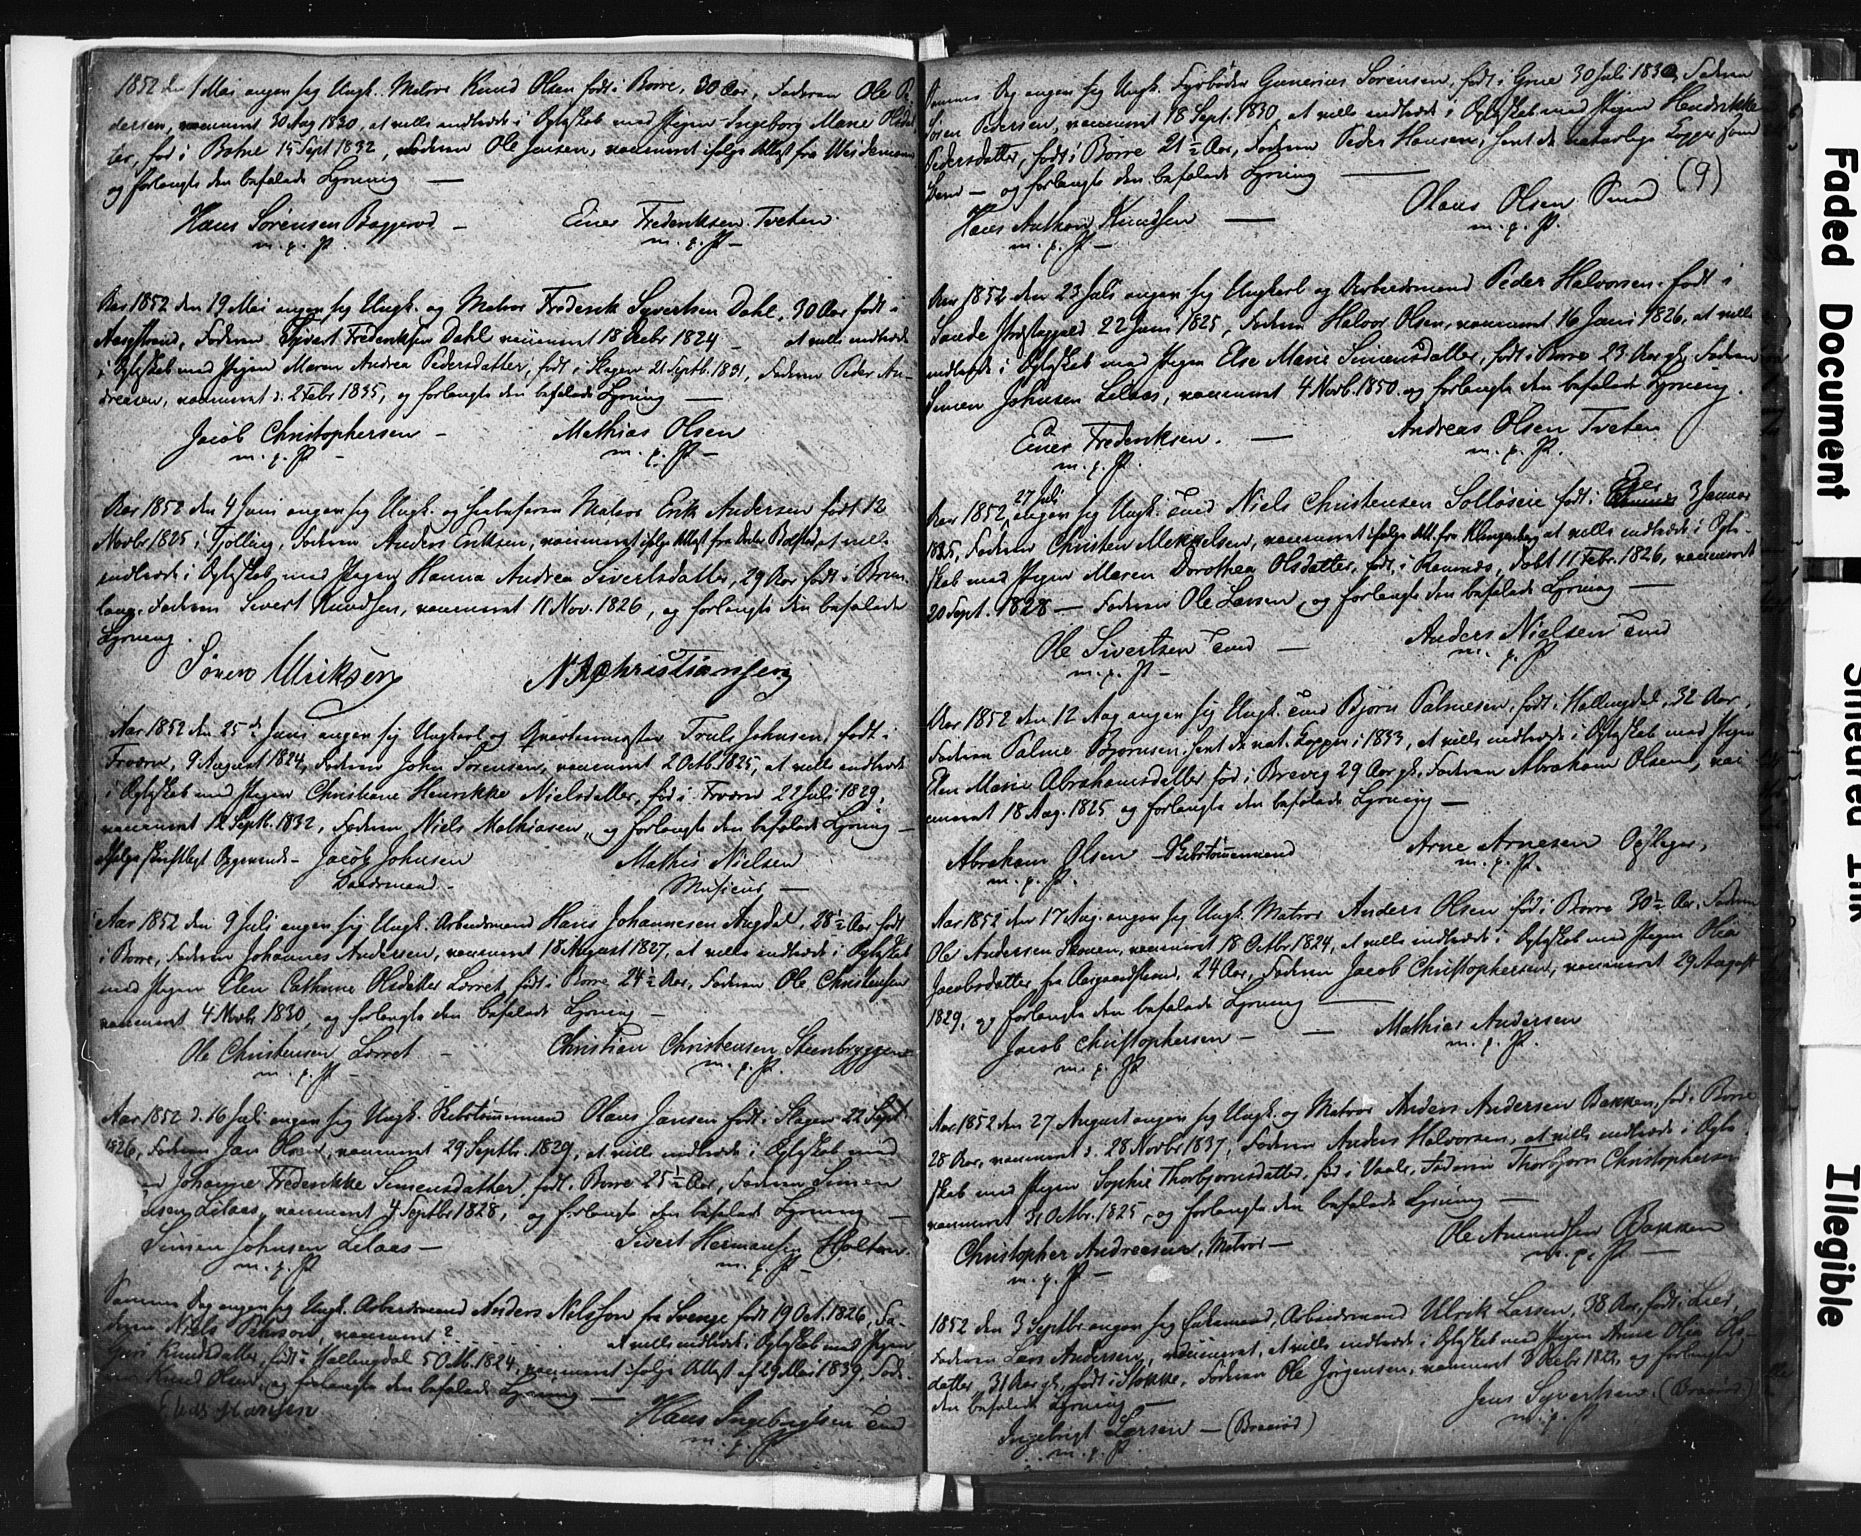 1852 den 1 Mai angav sig Ungk. Matros Knud Olsen født i Borre, 30 Aar, Faderen Ole
dersen, vaccineret 30 Aug 1830, at ville indtræde i Egteskab med Pigen Ingeborg Marie Olsdat
ter, fød i Botne 15 Sept 1832, Faderen Ole Jensen, vaccineret ifølge Attest fra
og forlangte den befalede Lysning —
Hans Sørensen Baggerød — Einer Frederiksen Tveten
m. p. P. m. p. P. —
Aar 1852 den 19 Mai angav sig Ungk. og Matros Frederik Syvertsen Dahl, 30 Aar født i
Aasgstrand, Faderen Syvert Frederiksen Dahl vaccineret 18 Decbr 1824 — at ville indtræde
i Egteskab med Pigen Maren Andrea Pedersdatter, født i Slagen 21 Septb. 1831, Faderen Peder An-
dreasen, vaccineret d. 2 Febr 1835, og forlangte den befalede Lysning —
Jacob Christophersen — Mathias Olsen
m. p. P. — m. p. P —
Aar 1852 den 4 Juni angav sig Ungk. og Matros Erik Andersen født 12
Novbr 1825 i Tjølling, Faderen Anders Eriksen, vaccineret ifølge Attest fra at ville
indtræde i Egteskab med Pigen Hanna Andrea Sivertsdatter, 29 Aar født i Brun
lange Faderen Sivert Knudsen, vaccineret 11 Nov. 1826, og forlangte den befalede
Lysning.
Sören Ulriksen N Christiansen
Aar 1852 den 25de Juni angav sig Ungkarl og Truls Johnsen, født i
9 August 1824, Faderen John Sørensen, vaccineret 2 Octb. 1825, at ville indtræde
i Egteskab med Pigen Christiane Henrikke Nielsdatter, fød i 22 Juli 1829,
vaccineret 12 Septb. 1832, Faderen Niels Mathiasen, og forlangte den befalede Lysning —
Ifølge skriftligt Opgivende — Jacob Johnsen Mathis Nielsen
Baadsmand — Musicus —
Aar 1852 den 9 Juli angav sig Ungk. Arbeidsmand Hans Johannesen Augdal, 28½ Aar født
i Borre, Faderen Johannes Andersen, vaccineret 18 August 1827, at ville indtræde i Egteskab
med Pigen Elen Cathrine Olsdatter Lørret, født i Borre 24½ Aar, Faderen Ole Christensen
vaccineret 4 Novbr. 1830, og forlangte den befalede Lysning —
Ole Christensen Lørret — Christian Christensen Steenbryggen
m. p. P. — m. p. P.
Aar 1852 d. 16 Juli angav sig Ungk. Skibstømmermand Olaus Jansen født i Slagen 22 Sept
1826, Faderen Jan Olsen, vaccineret 29 Septbr. 1829, at ville indtræde i Egteskab med
Johanne Frederikke Simensdatter, født i Borre 25½ Aar, Faderen Simen
nsen Lelaas, vaccineret 4 Septbr 1828, og forlangte den befalede Lysning —
Simen Johnsen Lelaas — Sivert Hermansen Holtan
m. p. P. — m. p. P. —
Samme Dag angav sig Ungk. Arbeidsmand Anders Nilsson fra Sverige født 19 Oct. 1826, Fa-
deren Niels Pehrson, vaccineret? at ville indtræde i Egteskab med Pigen
Guri Knudsdatter, født i Hallingdal 5 Octb. 1824, vaccineret ifølge Attest af 29 Mai 1839, Fade-
ren Knud Olsen, og forlangte den befalede Lysning —
Hansen Hans Ingebrigtsen
m. p. P.
Samme Dag angav sig Ungk. Fyrbøder Gunerius Sørensen, født i Grue 30 Juli 1830, Faderen
Søren Pedersen, vaccineret 18 Sept. 1830, at ville indtræde i Egteskab med Pigen Hendrikke
Pedersdatter, født i Borre 21½ Aar, Faderen Peder Hansen, havt de naturlige Kopper
— og forlangte den befalede Lysning — (9)
Hans Anthon Knudsen — Olaus Olsen
m. p. P. — m. p. P.
Aar 1852 den 23 Juli angav sig Ungkarl og Arbeidsmand Peder Halvorsen født i
Sande Præstegjæld 22 Juni 1825, Faderen Halvor Olsen, vaccineret 16 Juni 1826, at ville
indtræde i Egteskab med Pigen Else Marie Simensdatter, født i Borre 23 Aar gl. Faderen
Simen Johnsen Lelaas, vaccineret 4 Novb. 1850 og forlangte den befalede Lysning.
Einer Frederiksen. — Andreas Olsen Tveten
m. p. P. m. p. P.
27 Juli Eger
Aar 1852, angav sig Ungk. Niels Christensen Solløseie født i 3 Januar
1825, Faderen Christen Mikkelsen, vaccineret ifølge Att. fra Klingenberg at ville indtræde i Egte-
skab med Pigen Maren Dorothea Olsdatter, født i Ramnes, døbt 11 Febr. 1826, vaccineret
20 Sept. 1828 — Faderen Ole Larsen, og forlangte den befalede Lysning —
Ole Sivertsen — Anders Nielsen
m. p. P — m. p. P
Aar 1852 den 12 Aug angav sig Ungk. Bjørn Palmesen, født i Hallingdal, 32 Aar,
Faderen Palme Bjørnsen. havt de nat. Kopper i 1833, at ville indtræde i Egteskab med Pigen
Elen Marie Abrahamsdatter fød i Brevig 29 Aar gl. Faderen Abraham Olsen, vac-
cineret 18 Aug. 1825 og forlangte den befalede Lysning —
Abraham Olsen — Skibstømmermand Arne Arnesen
m. p. P. m. p. P.
Aar 1852 den 17 Aug. angav sig Ungk. Matros Anders Olsen fød i Borre 30½ Aar. Faderen
Ole Andersen Skouen, vaccineret 18 Octbr. 1824, at ville indtræde i Egteskab med Pigen Olia
Jacobsdatter fra Aasgaardstrand, 24 Aar, Faderen Jacob Christophersen, vaccineret 29 August
1829, og forlangte den befalede Lysning —
Jacob Christophersen — Mathias Andersen
m. p. P m. p. P.
Aar 1852 den 27 August angav sig Ungk. og Matros Anders Andersen Bakken, fød i Borre
28 Aar, vaccineret d. 28 Novbr 1837, Faderen Anders Halvorsen, at ville indtræde i Egte
skab med Pigen Sophie Thorbjørnsdatter, fød i Vaale, Faderen Thorbjørn Christophersen
vaccineret 31 Octbr. 1825, og forlangte den befalede Lysning —
Christopher Andreasen, Matros — Ole Amundsen Bakken
m. p. P — m. p. P —
1852 den 3 Septbr angav sig Enkemand, Arbeidsmand Ulrik Larsen, 38 Aar, født i Lier,
Faderen Lars Andersen, vaccineret, at ville indtræde i Egteskab med Pigen Anne Olia Ols-
datter, 31 Aar gl., født i Stokke, Faderen Ole Jørgensen, vaccineret 3 Decbr 1822, og forlangte
den befalede Lysning — Jens Syvertsen (Braarød)
Ingebrigt Larsen — (Braarød) m. p. P
m. p. P.
Faded Document
Smeared Ink
Illegible